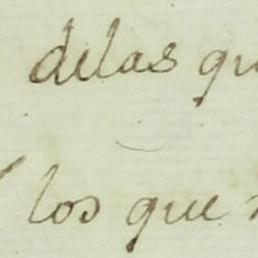 delas qu
los que